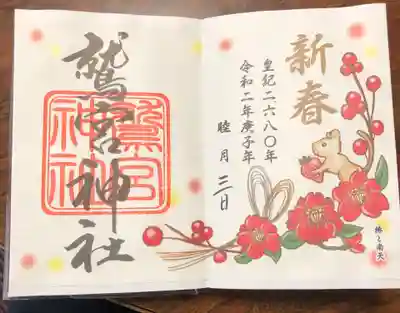 新春
皇紀二六八〇年
令和二年庚子年
睦月三日
椿と南天
鷲宮神社
鷲宮
神社